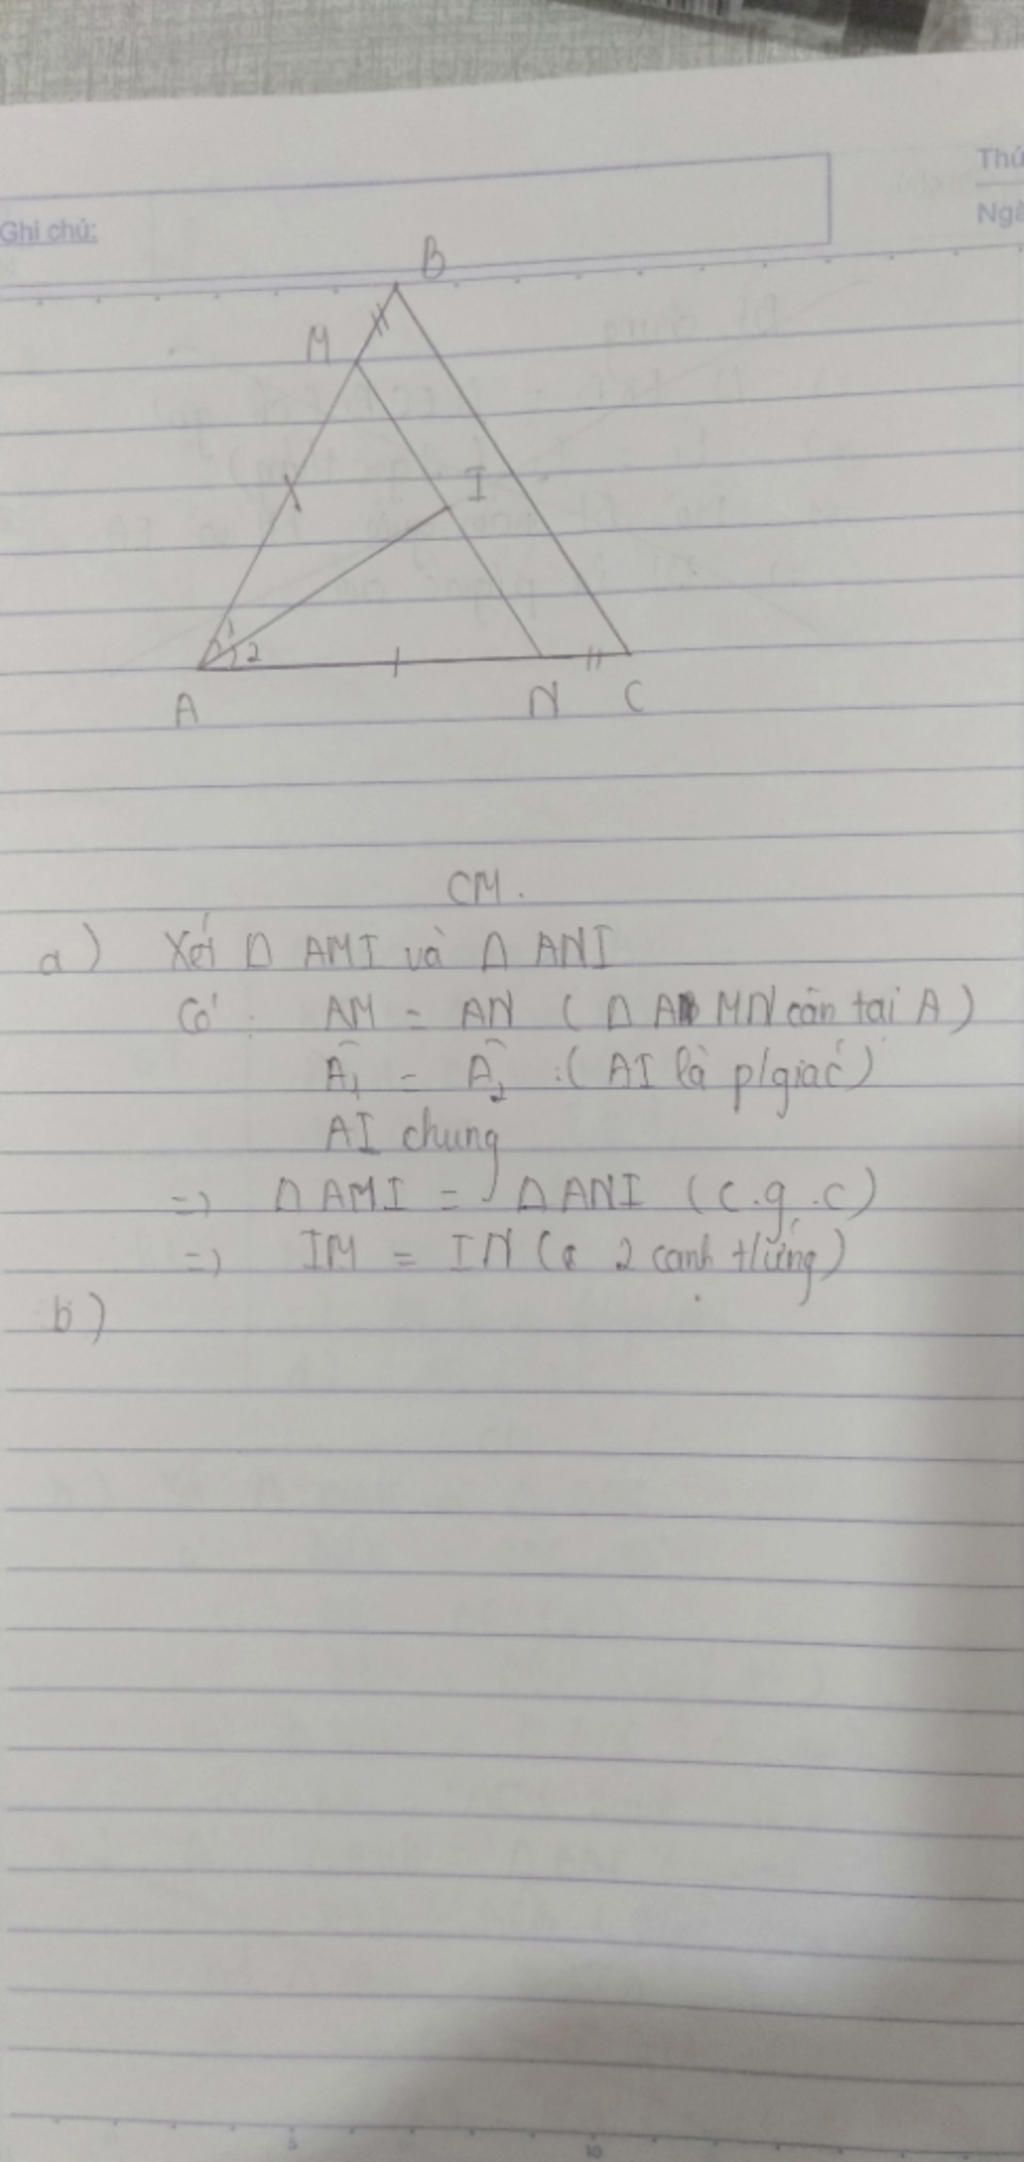 Thứ
Ghi chú:
Ngà
B
M
I
1
2
A
N
C
CM.
a) Xét Δ AMI và Δ ANI
Có: AM = AN (Δ AMN cân tại A)
Â₁ = Â₂ (AI là p/giác)
AI chung
=> Δ AMI = Δ ANI (c.g.c)
=> IM = IN (2 cạnh t/ứng)
b)
5
10